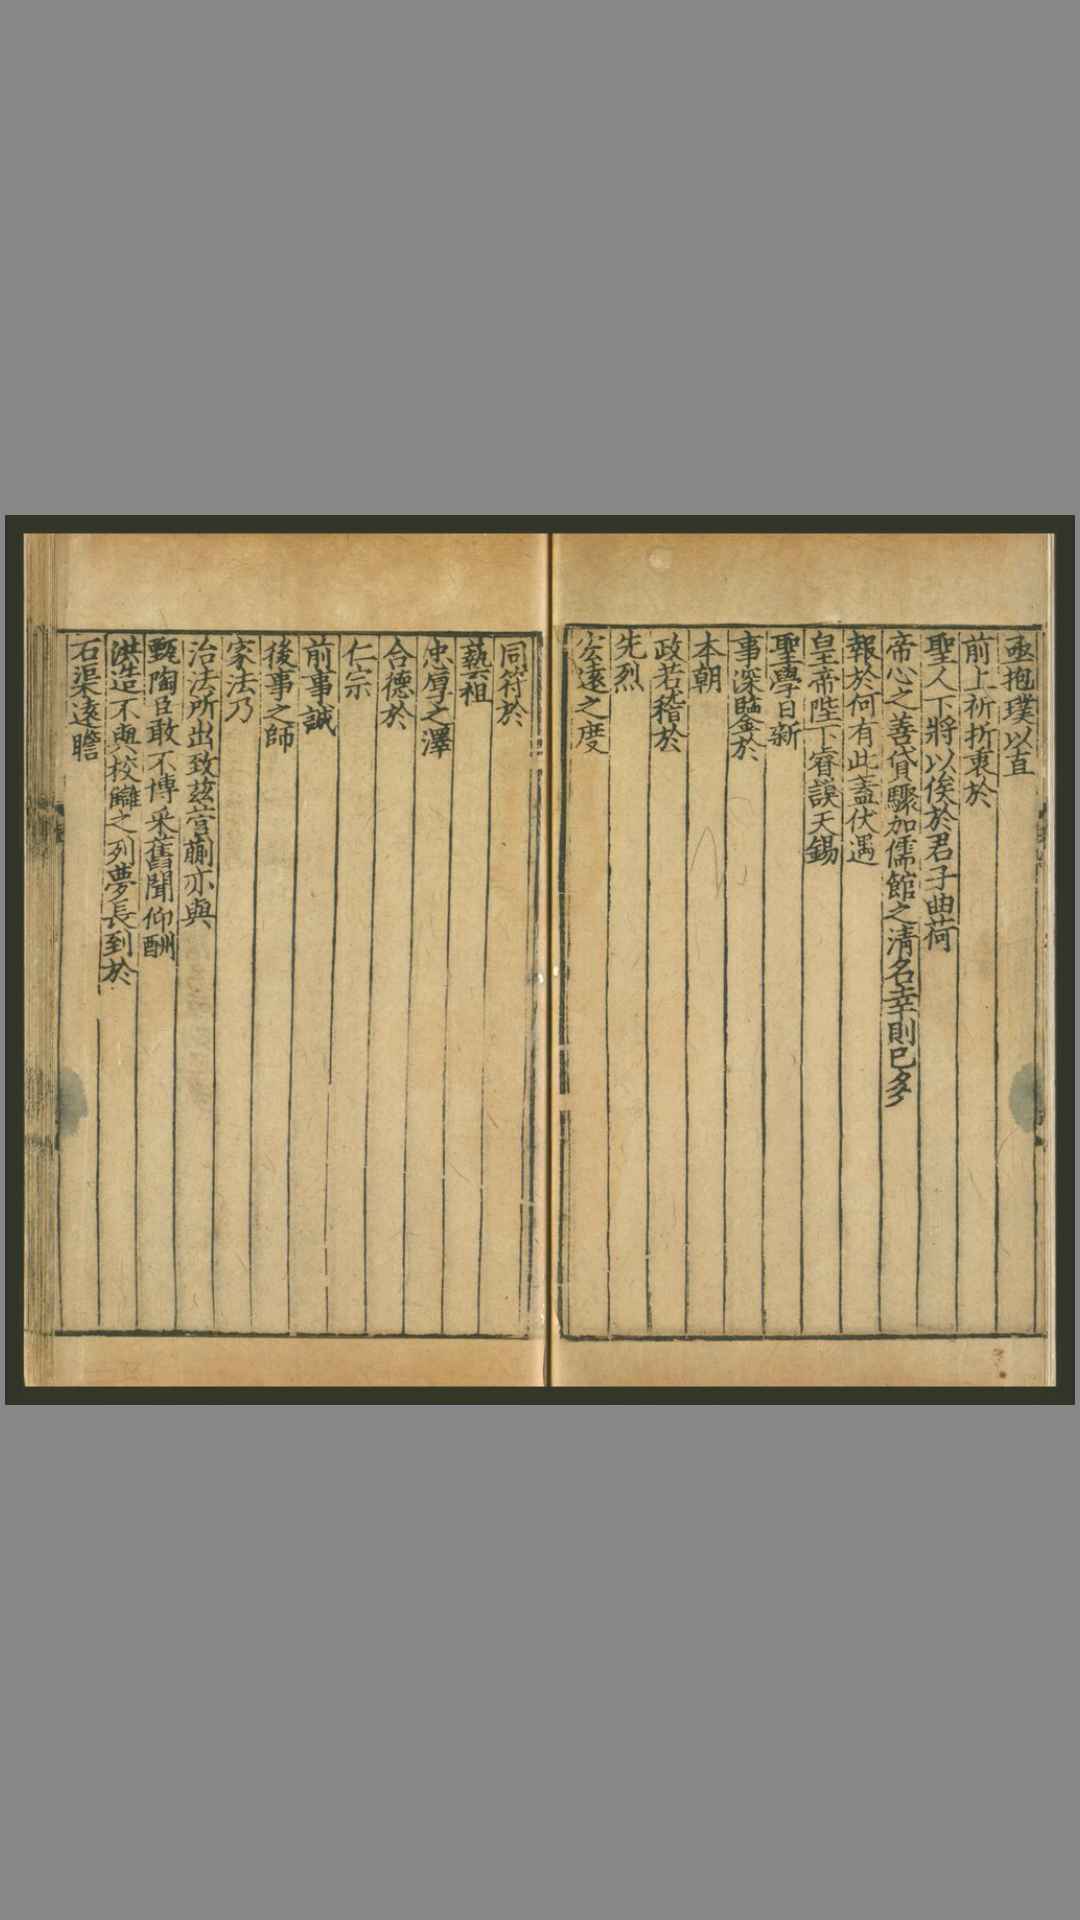 亟抱璞以直
前上祈折衷於
聖人下將以俟於君子曲荷
帝心之善貸驟加儒館之清名幸則已多
報於何有此蓋伏遇
皇帝陛下睿謨天錫
聖學日新
事深鑒於
本朝
政若稽於
先烈
安遠之度
同符於
藝祖
忠厚之澤
合德於
仁宗
前事誠
後事之師
家法乃
治法所出致茲菅蒯亦與
甄陶臣敢不博采舊聞仰酬
洪造不與校讎之列夢長到於
石渠遠瞻